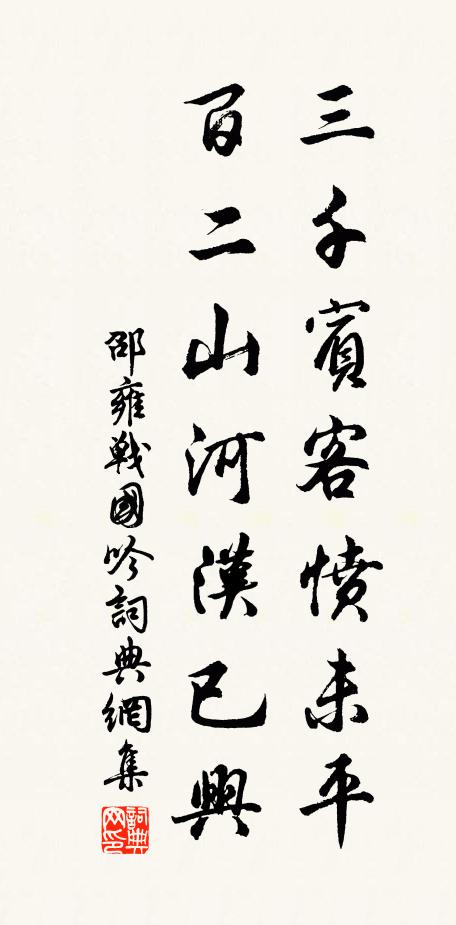 三千賓客憤未平
百二山河漢已興
邵雍戰國吟詞典網集
詞典
网印